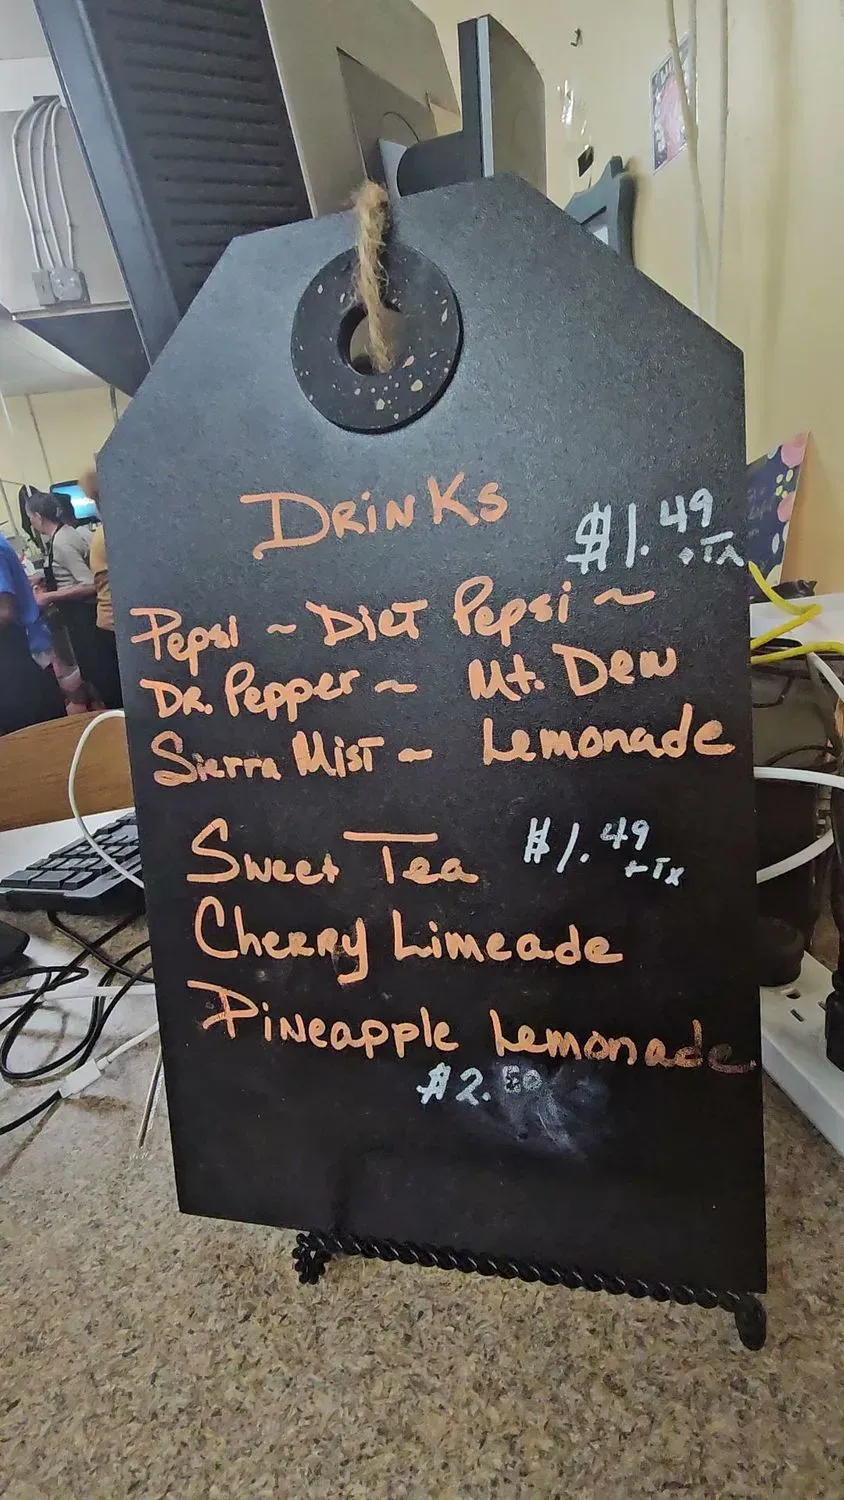 DRINKS $1.49
+TX
Pepsi ~ Diet Pepsi ~
DR. Pepper ~ Mt. Dew
Sierra Mist ~ Lemonade
Sweet Tea $1.49
+Tx
Cherry Limeade
Pineapple Lemonade
$2.50